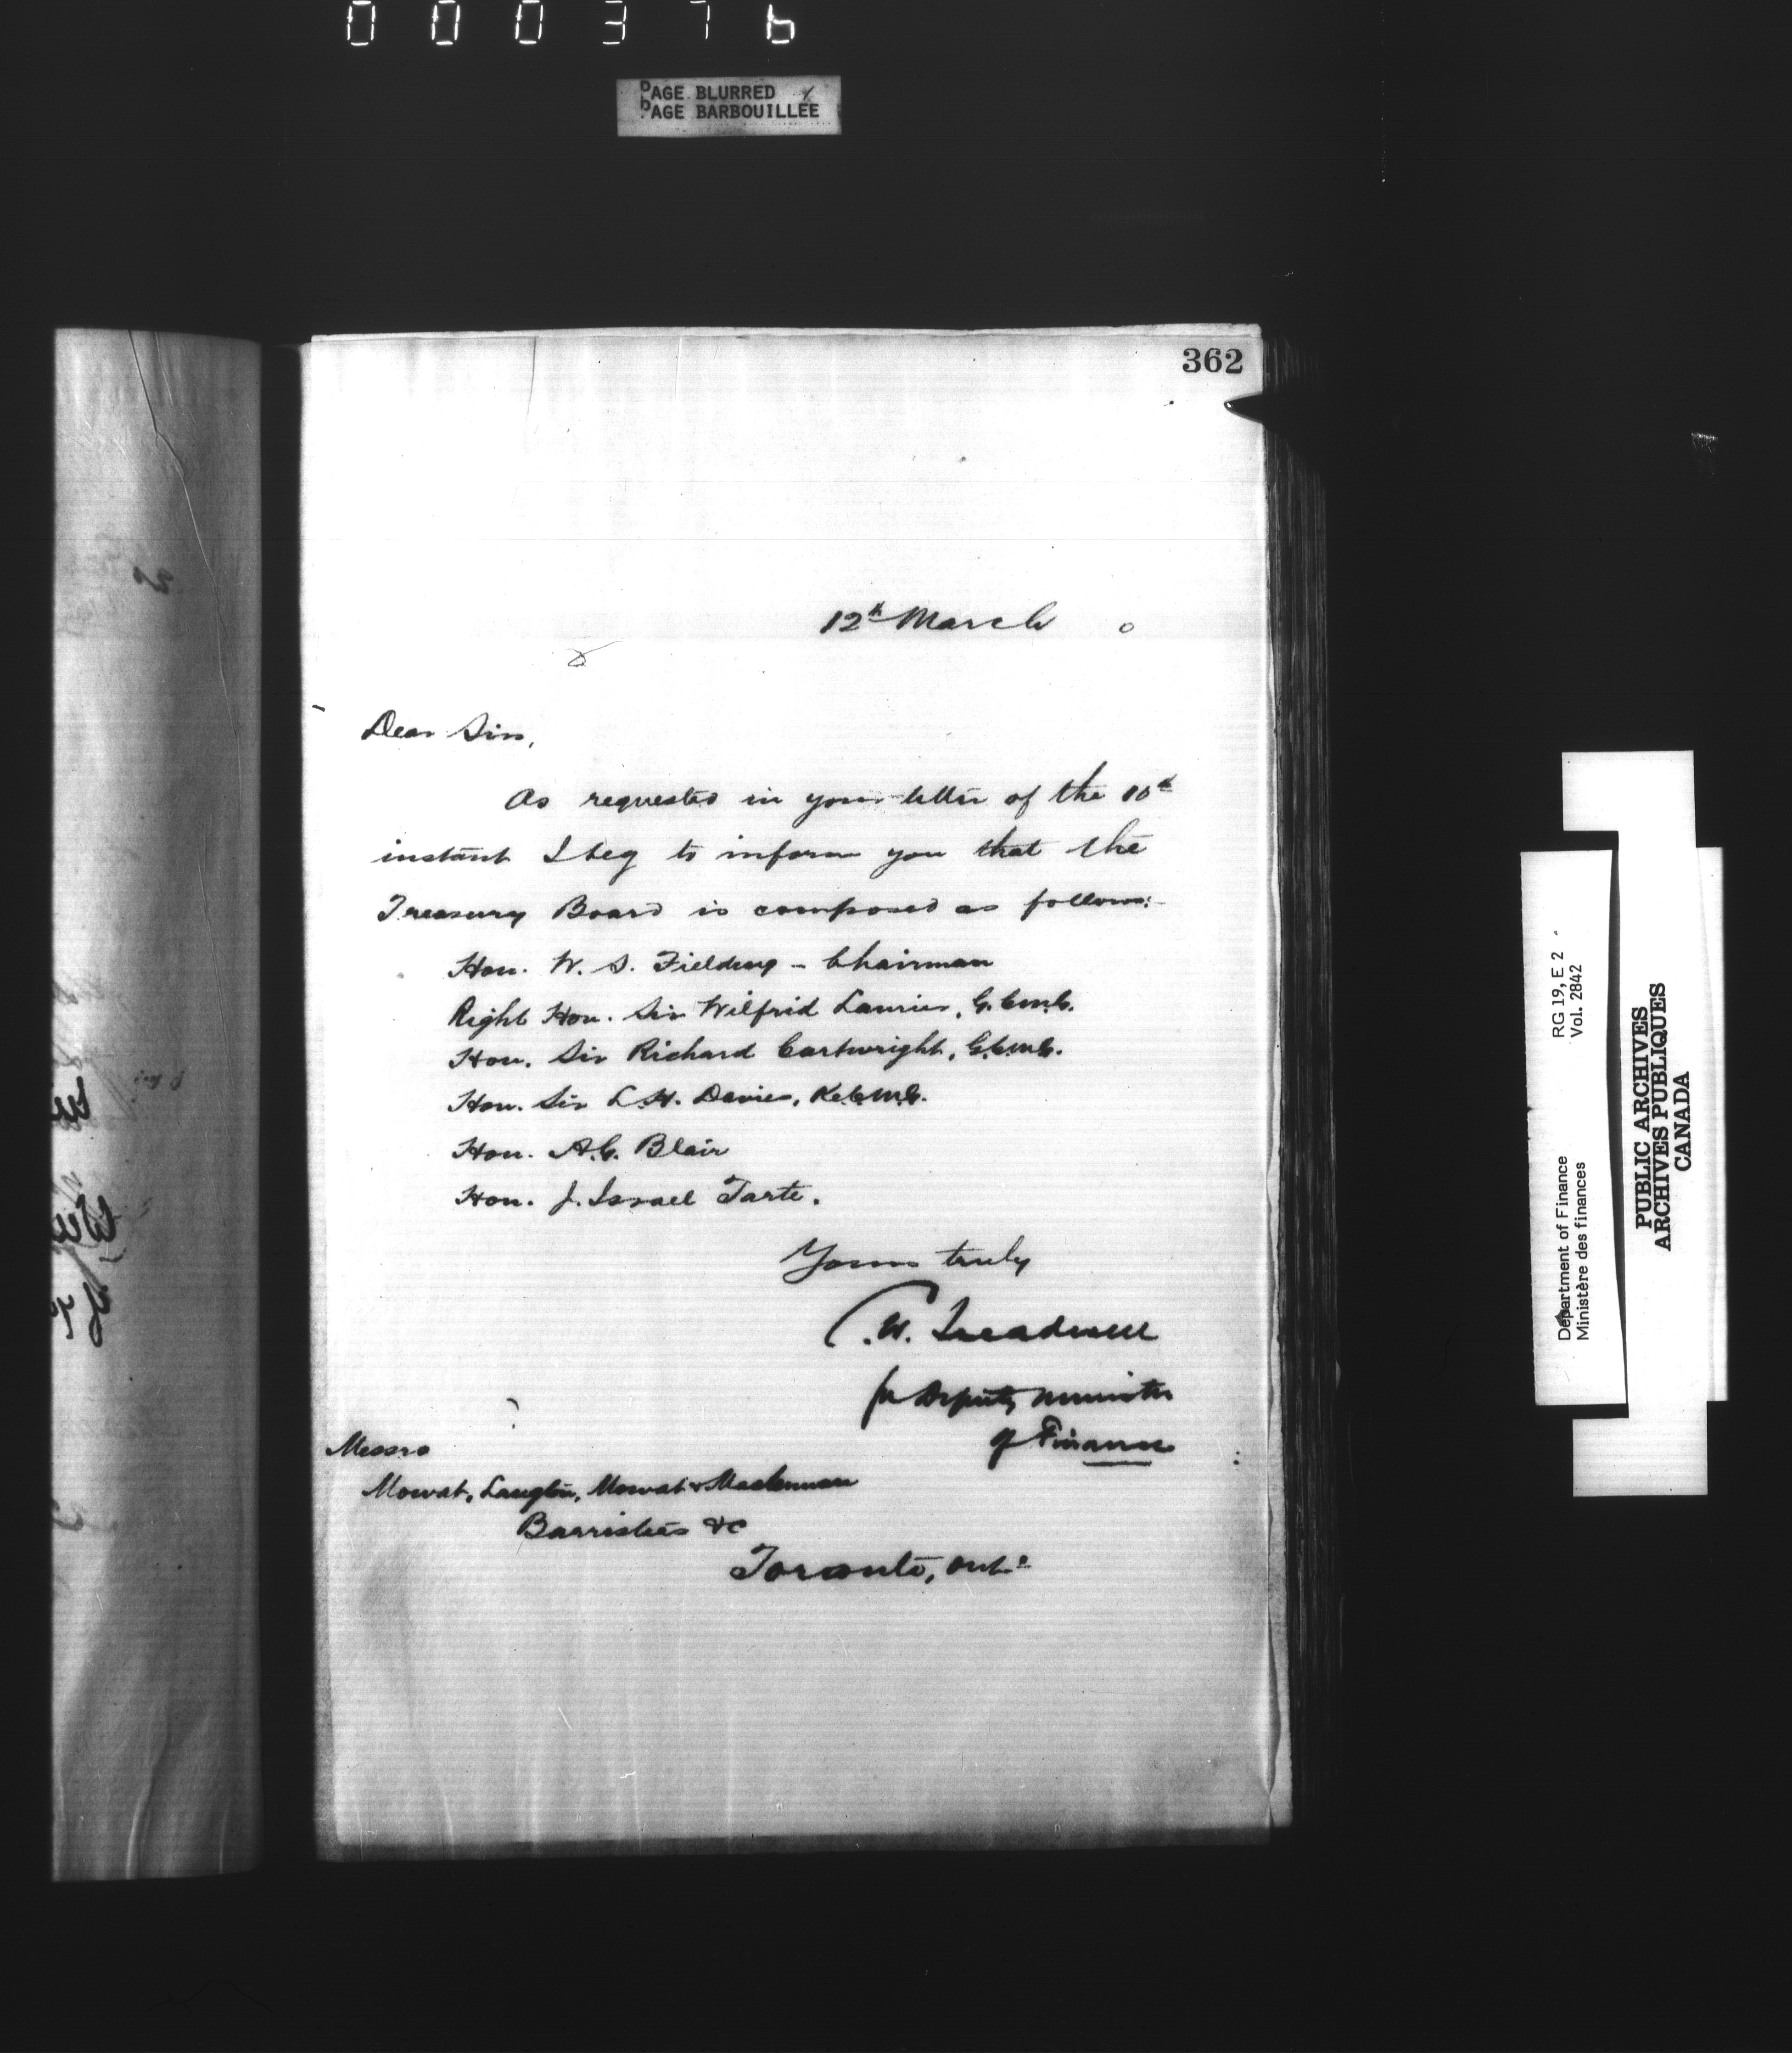 000376
PAGE BLURRED
PAGE BARBOUILLEE
362
12th March 0
Dear Sirs,
As requested in your letter of the 10th
instant I beg to inform you that the
Treasury Board is composed as follows:-
Hon. W. S. Fielding - Chairman
Right Hon. Sir Wilfrid Laurier, G.C.M.G.
Hon. Sir Richard Cartwright, G.C.M.G.
Hon. Sir L.H. Davies, K.C.M.G.
Hon. A.G. Blair
Hon. J. Israel Tarte.
Yours truly
C.W. Treadwell
for Deputy Minister
of Finance
Messrs
Mowat, Langton, Mowat & Maclennan
Barristers &c
Toronto, Ont.
RG 19, E 2
Vol. 2842
Department of Finance
Ministère des finances
PUBLIC ARCHIVES
ARCHIVES PUBLIQUES
CANADA